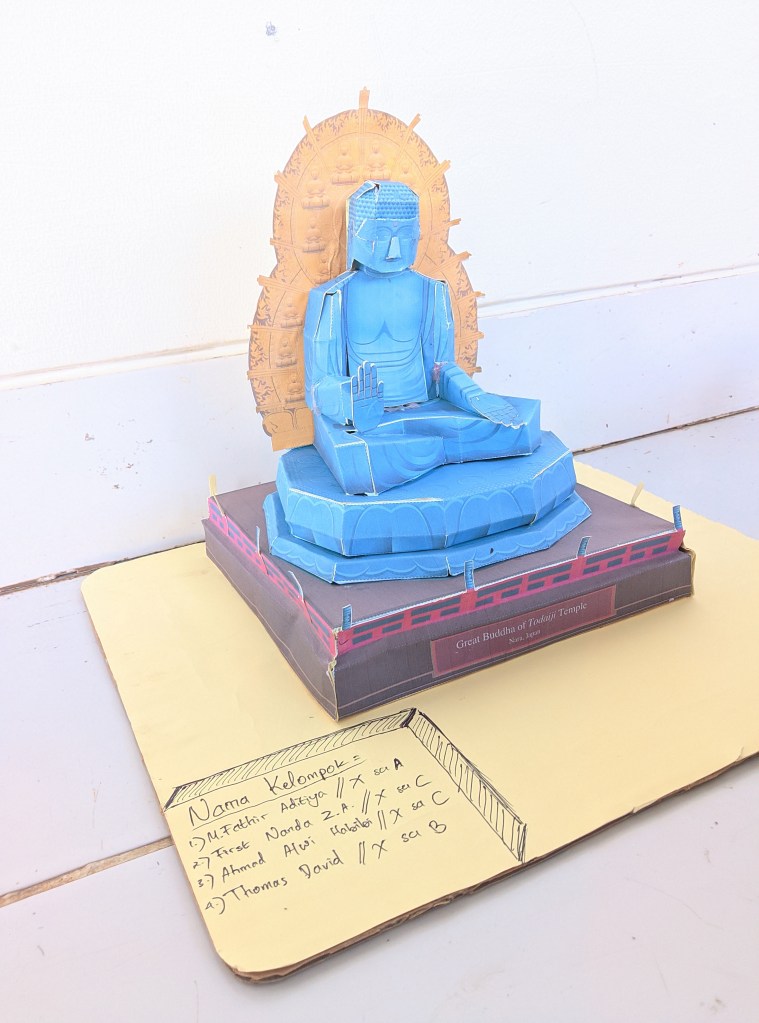 Great Buddha of Todaiji Temple
Nara, Japan
Nama Kelompok =
1.) M. Fathir Aditiya // X sci A
2.) First Nanda Z.A. // X sci C
3.) Ahmad Alwi Habibi // X sci C
4.) Thomas David // X sci B